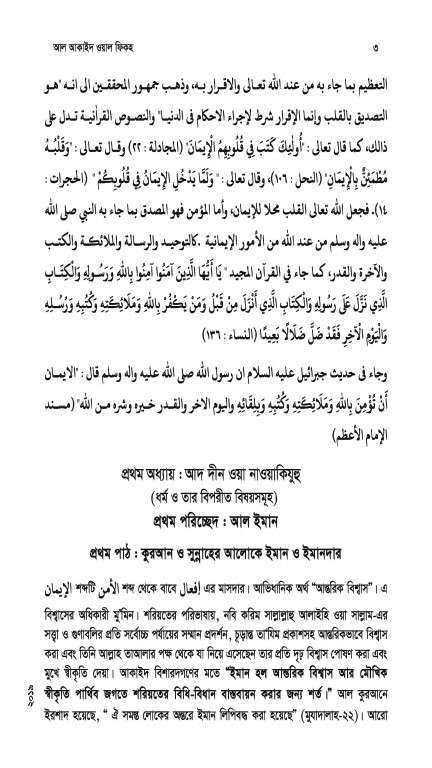 আল আকাইদ ওয়াল ফিকহ ৩
التعظيم بما جاء به من عند الله تعالى والاقرار به، وذهب جمهور المحققين الى انه "هو
التصديق بالقلب وإنما الإقرار شرط لإجراء الاحكام فى الدنيا" والنصوص القرأنية تدل على
ذالك، كما قال تعالى : "أُولَٰئِكَ كَتَبَ فِي قُلُوبِهِمُ الْإِيمَانَ" (المجادلة : ٢٢) وقال تعالى : "وَقَلْبُهُ
مُطْمَئِنٌّ بِالْإِيمَانِ" (النحل : ١٠٦)، وقال تعالى : " وَلَمَّا يَدْخُلِ الْإِيمَانُ فِي قُلُوبِكُمْ" (الحجرات :
١٤). فجعل الله تعالى القلب محلا للإيمان، وأما المؤمن فهو المصدق بما جاء به النبي صلى الله
عليه واله وسلم من عند الله من الأمور الإيمانية .كالتوحيد والرسالة والملائكة والكتب
والآخرة والقدر، كما جاء في القرآن المجيد " يَا أَيُّهَا الَّذِينَ آمَنُوا آمِنُوا بِاللَّهِ وَرَسُولِهِ وَالْكِتَابِ
الَّذِي نَزَّلَ عَلَىٰ رَسُولِهِ وَالْكِتَابِ الَّذِي أَنْزَلَ مِنْ قَبْلُ وَمَنْ يَكْفُرْ بِاللَّهِ وَمَلَائِكَتِهِ وَكُتُبِهِ وَرُسُلِهِ
وَالْيَوْمِ الْآخِرِ فَقَدْ ضَلَّ ضَلَالًا بَعِيدًا (النساء : ١٣٦)
وجاء فى حديث جبرائيل عليه السلام ان رسول الله صلى الله عليه واله وسلم قال : "الايمان
أَنْ تُؤْمِنَ بِاللَّهِ وَمَلَائِكَتِهِ وَكُتُبِهِ وَبِلِقَائِهِ واليوم الاخر والقدر خيره وشره من الله" (مسند
الإمام الأعظم)
প্রথম অধ্যায় : আদ দীন ওয়া নাওয়াকিযুহু
(ধর্ম ও তার বিপরীত বিষয়সমূহ)
প্রথম পরিচ্ছেদ : আল ইমান
প্রথম পাঠ : কুরআন ও সুন্নাহের আলোকে ইমান ও ইমানদার
الإيمان শব্দটি الأمن শব্দ থেকে বাবে إفعال এর মাসদার। আভিধানিক অর্থ “আন্তরিক বিশ্বাস”। এ
বিশ্বাসের অধিকারী মু’মিন। শরিয়তের পরিভাষায়, নবি করিম সাল্লাল্লাহু আলাইহি ওয়া সাল্লাম-এর
সত্ত্বা ও গুণাবলির প্রতি সর্বোচ্চ পর্যায়ের সম্মান প্রদর্শন, চূড়ান্ত তা’যিম প্রকাশসহ আন্তরিকভাবে বিশ্বাস
করা এবং তিনি আল্লাহ তাআলার পক্ষ থেকে যা নিয়ে এসেছেন তার প্রতি দৃঢ় বিশ্বাস পোষণ করা এবং
মুখে স্বীকৃতি দেয়া। আকাইদ বিশারদগণের মতে “ইমান হল আন্তরিক বিশ্বাস আর মৌখিক
স্বীকৃতি পার্থিব জগতে শরিয়তের বিধি-বিধান বাস্তবায়ন করার জন্য শর্ত।” আল কুরআনে
ইরশাদ হয়েছে, “ ঐ সমস্ত লোকের অন্তরে ইমান লিপিবদ্ধ করা হয়েছে” (মুযাদালাহ-২২)। আরো
২০১৯